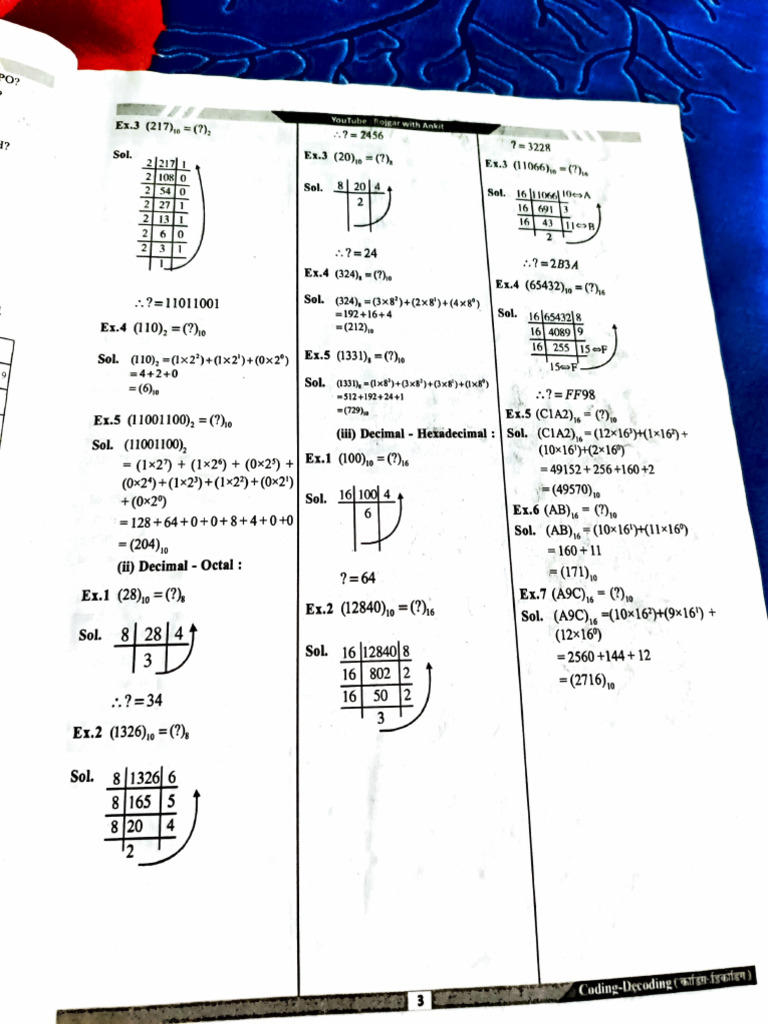 PO?
?
d?
9
YouTube Rojgar with Ankit
Ex.3 (217)₁₀ = (?)₂
Sol.
2 217 1
2 108 0
2 54 0
2 27 1
2 13 1
2 6 0
2 3 1
1
∴? = 11011001
Ex.4 (110)₂ = (?)₁₀
Sol. (110)₂ = (1×2²)+(1×2¹)+(0×2⁰)
= 4 + 2 + 0
= (6)₁₀
Ex.5 (11001100)₂ = (?)₁₀
Sol. (11001100)₂
= (1×2⁷) + (1×2⁶) + (0×2⁵) +
(0×2⁴)+(1×2³)+(1×2²)+(0×2¹)
+(0×2⁰)
= 128 + 64 + 0 + 0 + 8 + 4 + 0 +0
= (204)₁₀
(ii) Decimal - Octal :
Ex.1 (28)₁₀ = (?)₈
Sol. 8 28 4
3
∴? = 34
Ex.2 (1326)₁₀ = (?)₈
Sol. 8 1326 6
8 165 5
8 20 4
2
∴? = 2456
Ex.3 (20)₁₀ = (?)₈
Sol. 8 20 4
2
∴? = 24
Ex.4 (324)₈ = (?)₁₀
Sol. (324)₈ = (3×8²)+(2×8¹)+(4×8⁰)
= 192 + 16 + 4
= (212)₁₀
Ex.5 (1331)₈ = (?)₁₀
Sol. (1331)₈ = (1×8³)+(3×8²)+(3×8¹)+(1×8⁰)
= 512 + 192 + 24 + 1
= (729)₁₀
(iii) Decimal - Hexadecimal :
Ex.1 (100)₁₀ = (?)₁₆
Sol. 16 100 4
6
? = 64
Ex.2 (12840)₁₀ = (?)₁₆
Sol. 16 12840 8
16 802 2
16 50 2
3
? = 3228
Ex.3 (11066)₁₀ = (?)₁₆
Sol. 16 11066 10⇔A
16 691 3
16 43 11⇔B
2
∴? = 2B3A
Ex.4 (65432)₁₀ = (?)₁₆
Sol. 16 65432 8
16 4089 9
16 255 15⇔F
15⇔F
∴? = FF98
Ex.5 (C1A2)₁₆ = (?)₁₀
Sol. (C1A2)₁₆ = (12×16³)+(1×16²) +
(10×16¹)+(2×16⁰)
= 49152 + 256 +160 +2
= (49570)₁₀
Ex.6 (AB)₁₆ = (?)₁₀
Sol. (AB)₁₆ = (10×16¹)+(11×16⁰)
= 160 + 11
= (171)₁₀
Ex.7 (A9C)₁₆ = (?)₁₀
Sol. (A9C)₁₆ =(10×16²)+(9×16¹) +
(12×16⁰)
= 2560 +144 + 12
= (2716)₁₀
3
Coding-Decoding ( कोडिंग-डिकोडिंग )